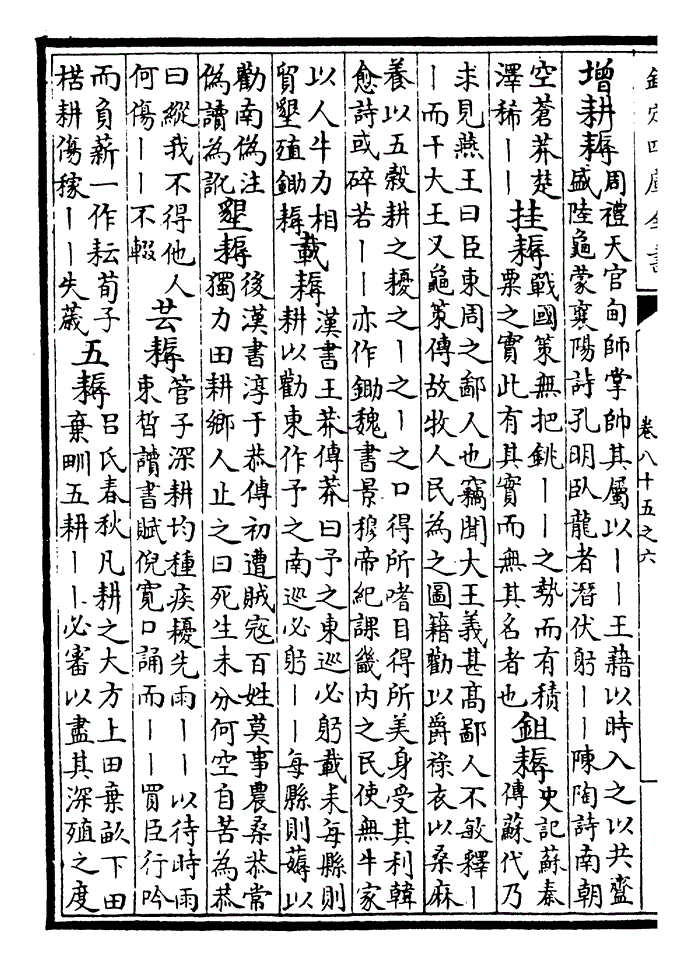 欽定四庫全書
卷八十五之六
增耕耨
周禮天官甸師掌帥其屬以丨丨王藉以時入之以共齍
盛陸龜蒙襄陽詩孔明卧龍者潛伏躬丨丨陳陶詩南朝
空蒼莽楚
澤稀丨丨
挂耨
戰國策無把銚丨丨之勢而有積
粟之實此有其實而無其名者也
鉏耨
史記蘇秦
傳蘇代乃
求見燕王曰臣東周之鄙人也竊聞大王義甚高鄙人不敏釋丨
丨而干大王又龜策傳故牧人民為之圖籍勸以爵祿衣以桑麻
養以五穀耕之耰之丨之丨之口得所嗜目得所美身受其利韓
愈詩或碎若丨丨亦作鋤魏書景穆帝紀課畿内之民使無牛家
以人牛力相
貿墾殖鋤耨
載耨
漢書王莽傳莽曰予之東巡必躬載耒每縣則
耕以勸東作予之南巡必躬丨丨每縣則薅以
勸南偽注
偽讀為訛
墾耨
後漢書淳于恭傳初遭賊寇百姓莫事農桑恭常
獨力田耕鄉人止之曰死生未分何空自苦為恭
曰縱我不得他人
何傷丨丨不輟
芸耨
管子深耕均種疾耰先雨丨丨以待時雨
束晳讀書賦倪寬口誦而丨丨買臣行吟
而負薪一作耘荀子
楛耕傷稼丨丨失歲
五耨
吕氏春秋凡耕之大方上田棄畝下田
棄甽五耕丨丨必審以盡其深殖之度